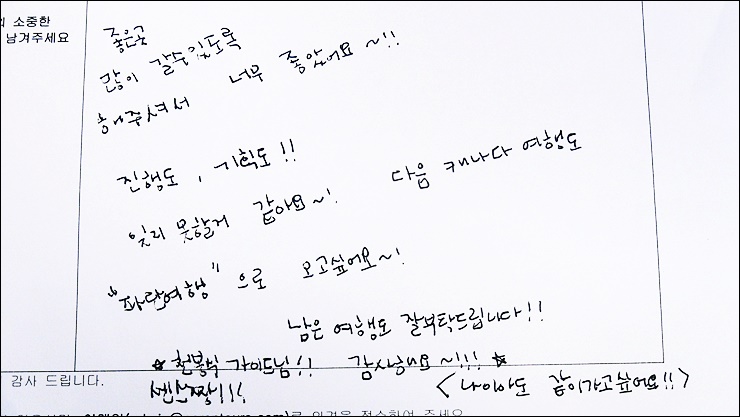 소중한
남겨주세요
좋은곳
많이 갈수있도록
해주셔서 너무 좋았어요~!!
진행도, 기획도!!
잊지 못할거 같아요~! 다음 캐나다 여행도
"파란여행"으로 오고싶어요~!
남은 여행도 잘부탁드립니다!!
★ 가이드님!! 감사해요~!!! ★
센스짱!!! <나이아도 같이가고싶어요!!>
감사 드립니다.
로 의견을 접수하여 주세요